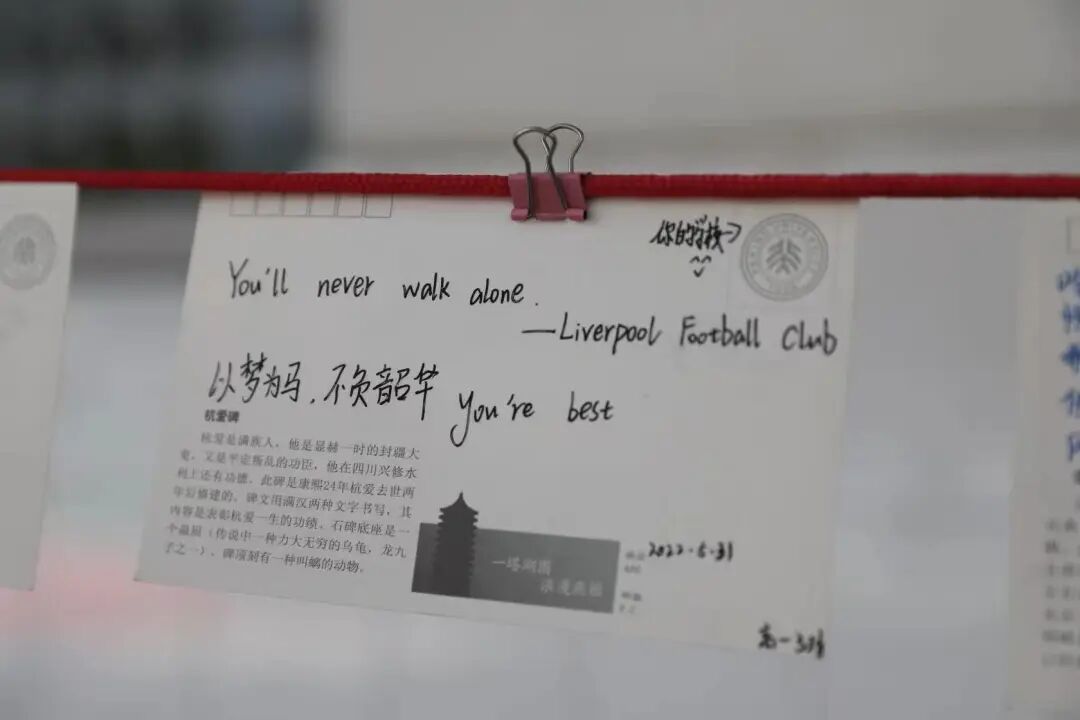 你的学校→
You'll never walk alone.
—Liverpool Football Club
以梦为马，不负韶华 You're best
杭爱碑
杭爱是满族人，他是显赫一时的封疆大
吏，又是平定叛乱的功臣，他在四川兴修水
利上还有功德。此碑是康熙24年杭爱去世两
年后修建的。碑文用满汉两种文字书写，其
内容是表彰杭爱一生的功绩。石碑底座是一
个赑屃（传说中一种力大无穷的乌龟，龙九
子之一），碑顶刻有一种叫螭的动物。
一塔湖图
浪漫燕园
2022.5.31
高一3班